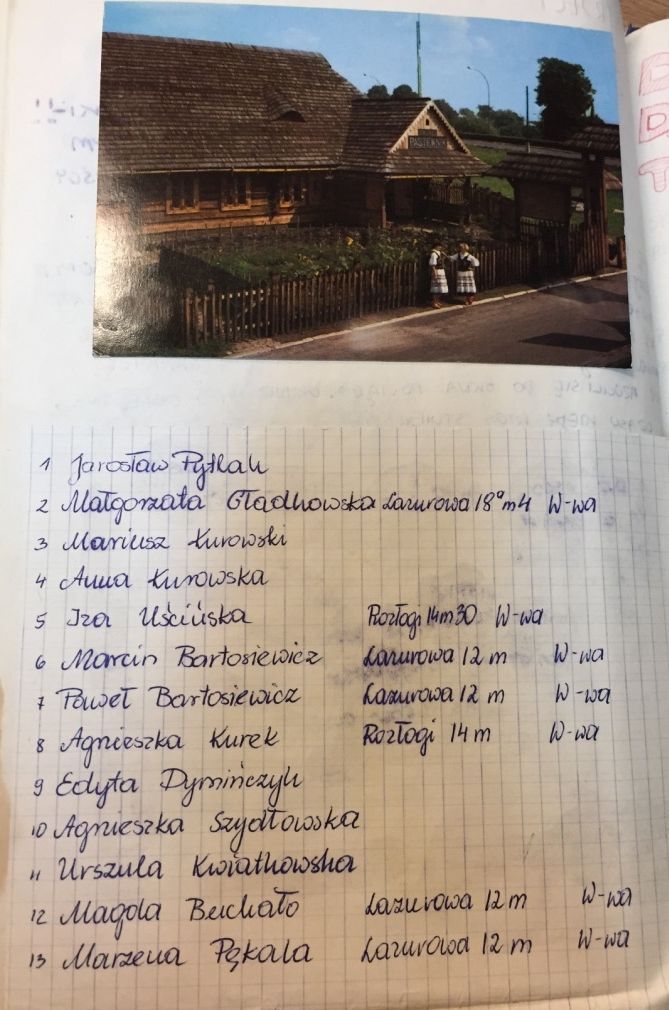 1 Jarosław Pytlak
2 Małgorzata Gladkowska Lazurowa 18ᵃm4 W-wa
3 Mariusz Łurowski
4 Anna Łurowska
5 Iza Uścińska Rozłogi 14m30 W-wa
6 Marcin Bartosiewicz Lazurowa 12 m W-wa
7 Paweł Bartosiewicz Lazurowa 12 m W-wa
8 Agnieszka Kurek Rozłogi 14 m W-wa
9 Edyta Dymińczyk
10 Agnieszka Szydłowska
11 Urszula Kwiatkowska
12 Magda Buchało Lazurowa 12 m W-wa
13 Marzena Pękala Lazurowa 12 m W-wa